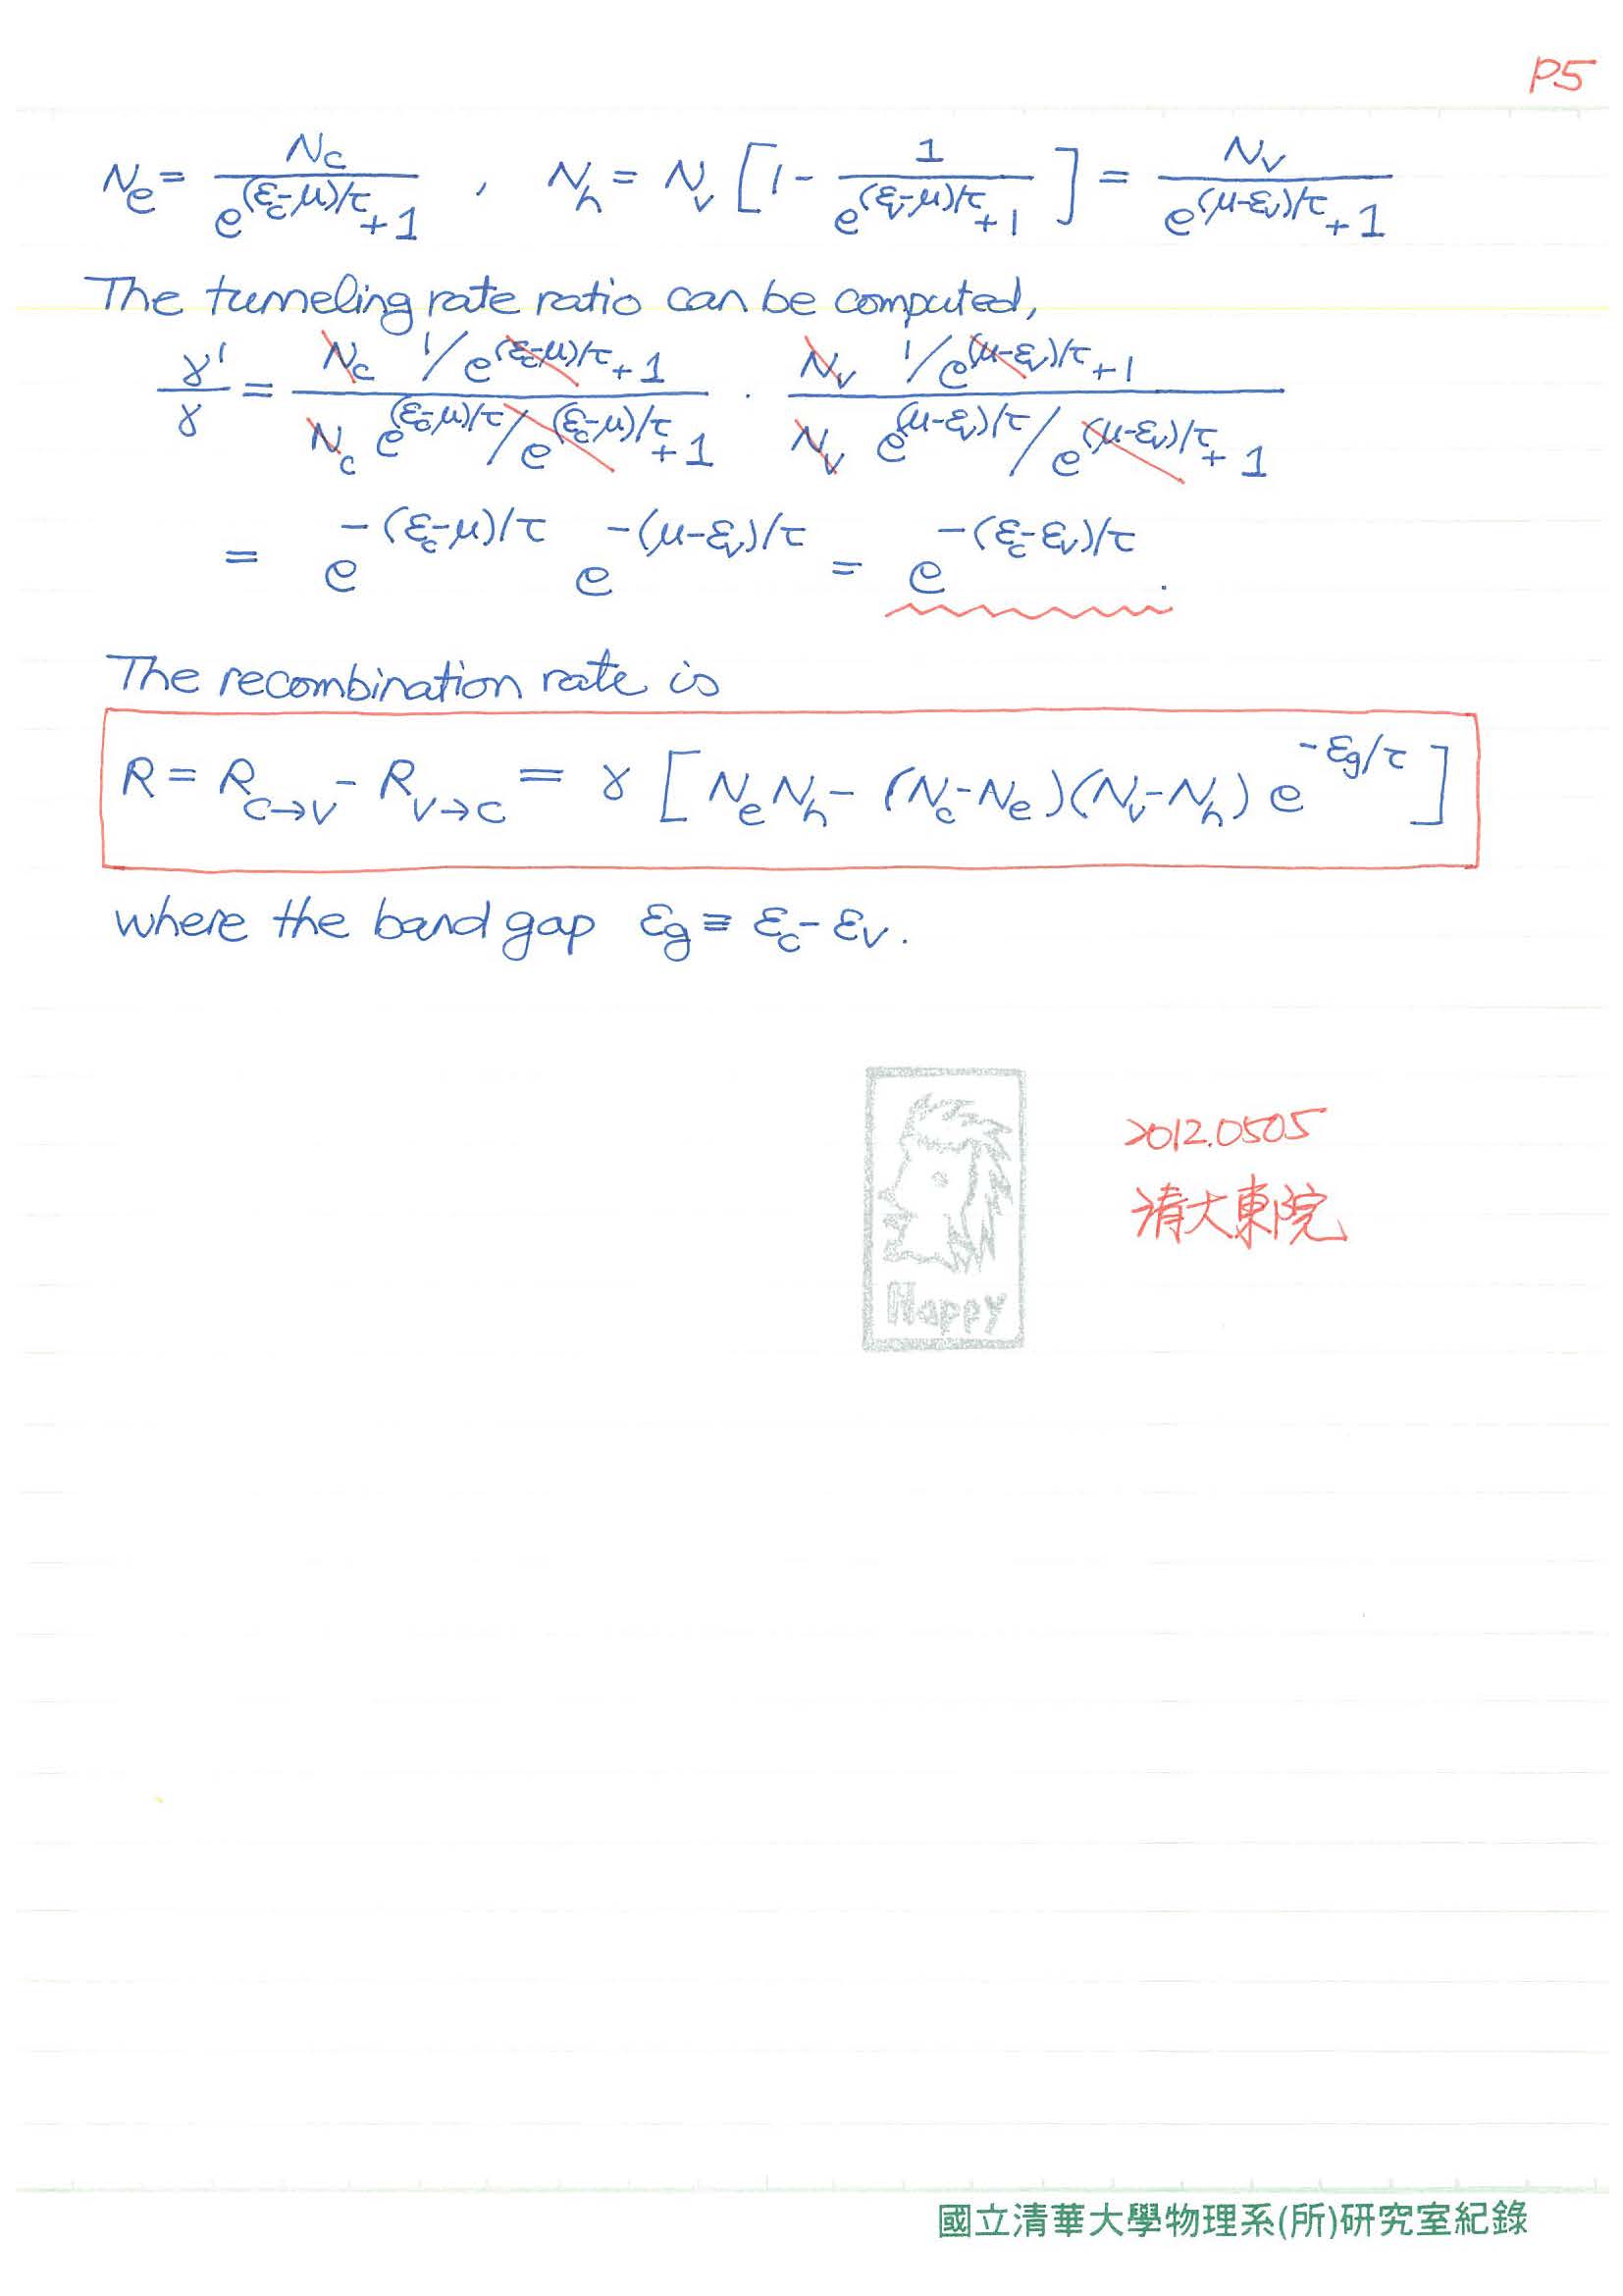 P5
Ne = Nc / (e^{(εc-μ)/τ} + 1) , Nh = Nv [1 - 1 / (e^{(εv-μ)/τ} + 1)] = Nv / (e^{(μ-εv)/τ} + 1)
The tunneling rate ratio can be computed,
γ'/γ = (Nc 1/e^{(εc-μ)/τ} + 1) / (Nc e^{(εc-μ)/τ} / e^{(εc-μ)/τ} + 1) · (Nv 1/e^{(μ-εv)/τ} + 1) / (Nv e^{(μ-εv)/τ} / e^{(μ-εv)/τ} + 1)
= e^{-(εc-μ)/τ} e^{-(μ-εv)/τ} = e^{-(εc-εv)/τ}.
The recombination rate is
R = R_{c→v} - R_{v→c} = γ [Ne Nh - (Nc-Ne)(Nv-Nh) e^{-εg/τ}]
where the band gap εg ≡ εc - εv.
2012.0505
清大東院
Happy
國立清華大學物理系(所)研究室紀錄